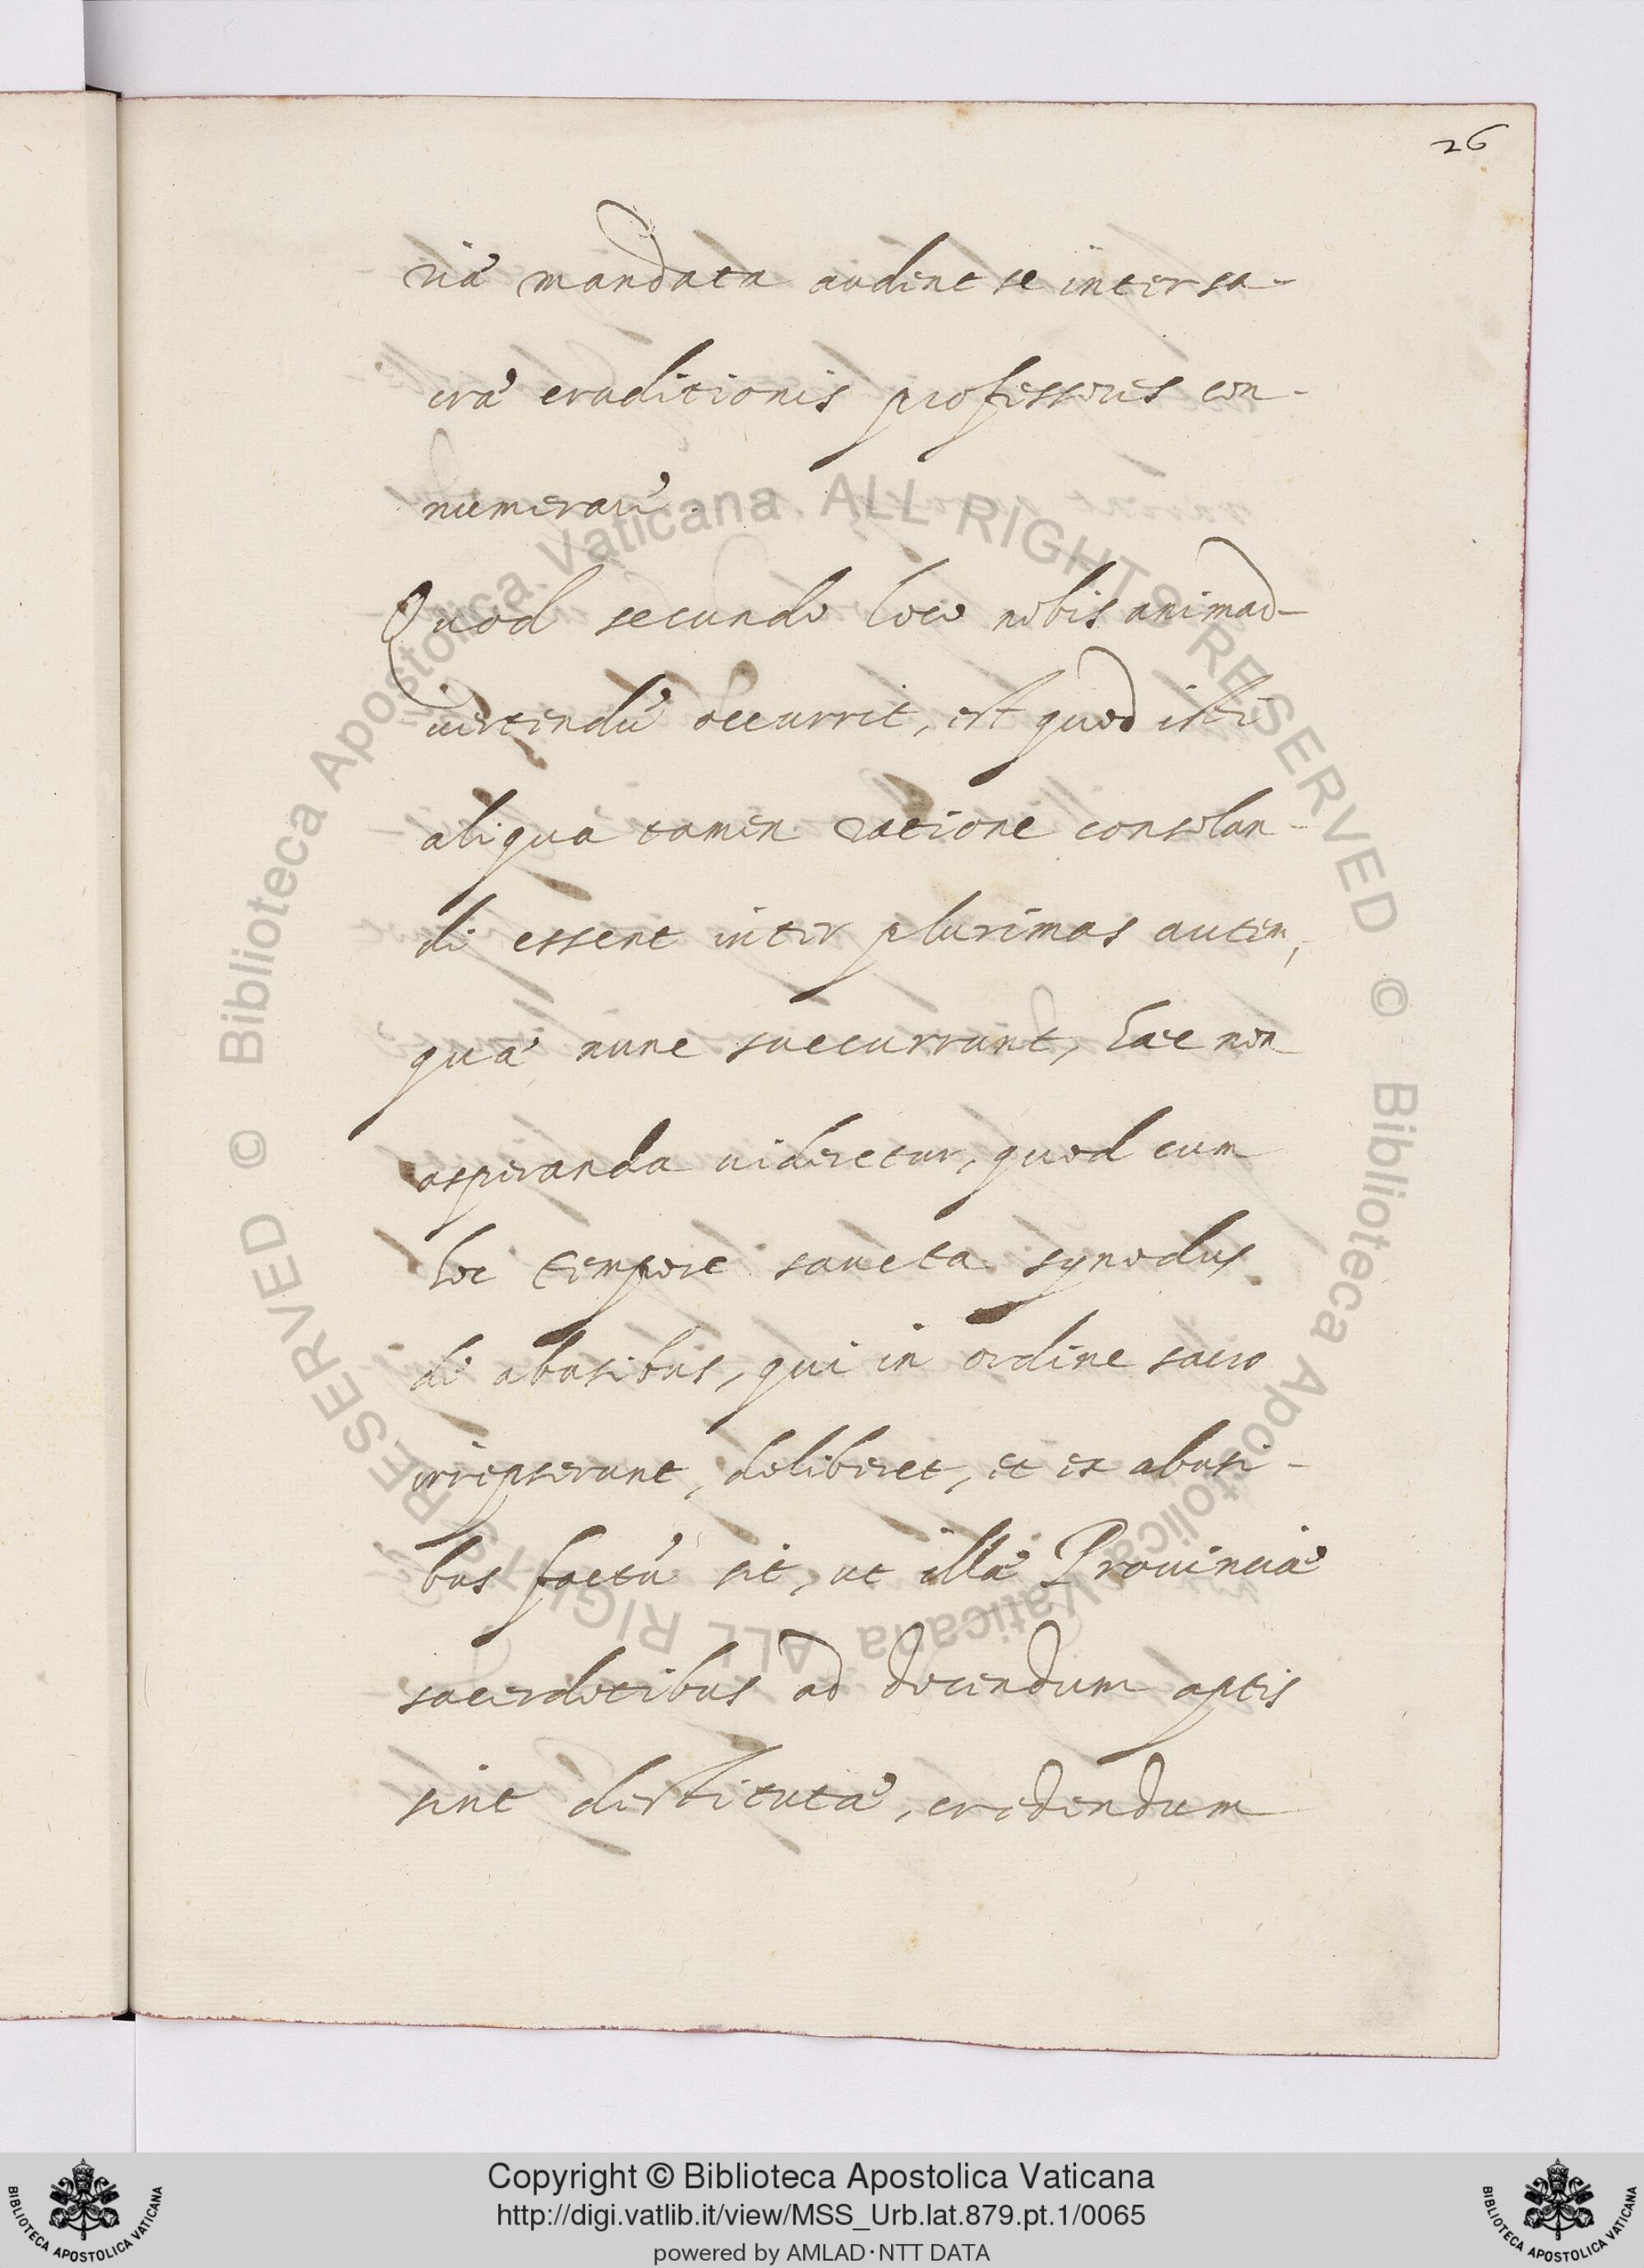 26
nia' mandata audent se inter sa-
cra' eruditionis professores con-
numerari'.
Quod secundo loco nobis animad-
uertendu' occurrit, est quod isti
aliqua tamen ratione consolan-
di essent inter plurimas autem,
qua' nunc succurrunt, haec non
asperanda uideretur, quod cum
hoc tempore sancta synodus
di abusibus, qui in ordine sacro
irrepserunt, deliberet, et ex abusi-
bus factu' sit, ut illa' Prouincia'
sacerdotibus ad docendum aptis
sint destituta', credendum
© Biblioteca Apostolica Vaticana ALL RIGHTS RESERVED
© Biblioteca Apostolica Vaticana ALL RIGHTS RESERVED
Copyright © Biblioteca Apostolica Vaticana
http://digi.vatlib.it/view/MSS_Urb.lat.879.pt.1/0065
powered by AMLAD·NTT DATA
BIBLIOTECA APOSTOLICA VATICANA
BIBLIOTECA APOSTOLICA VATICANA